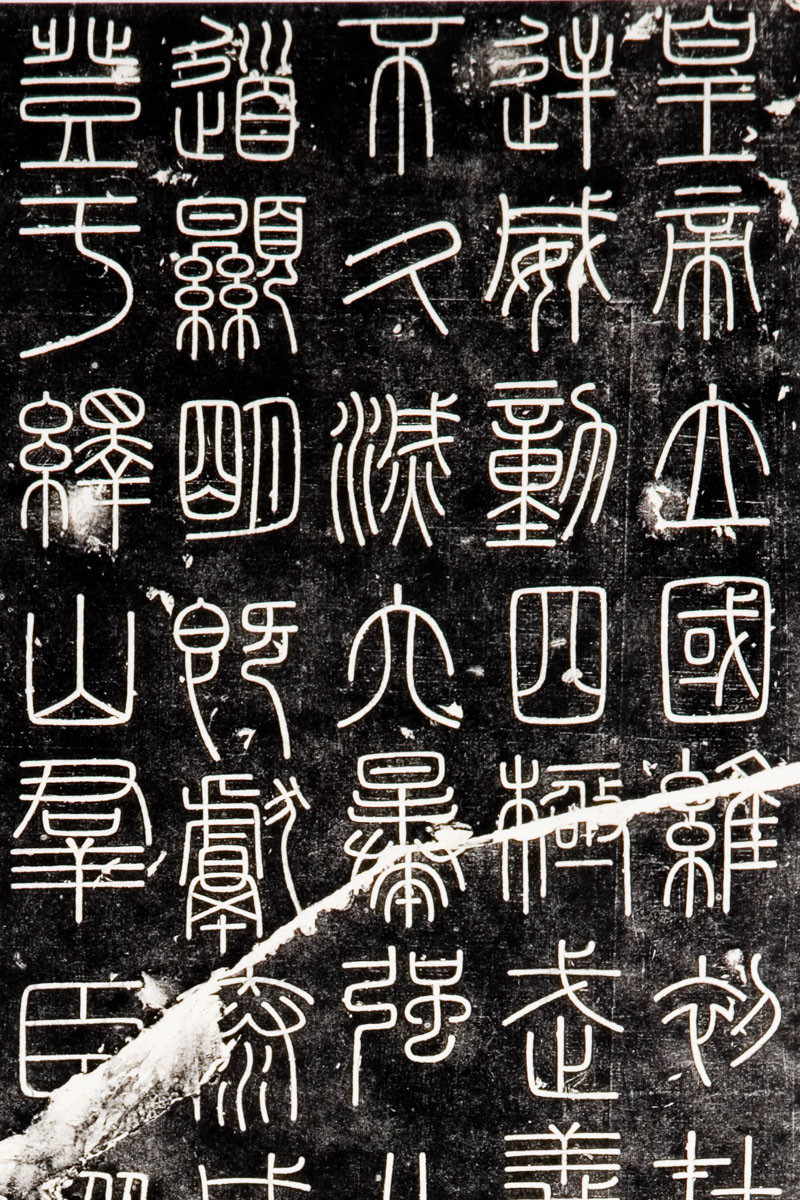 皇帝立國維初
逆威動四極武
不久滅六暴強
道顯明既獻泰
登于繹山羣臣